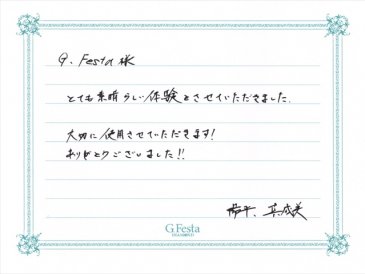 G. Festa 様
とても素晴らしい体験とさせていただきました.
大切に使用させていただきます!
ありがとうございました!!
恭平、真成美
G.Festa
DIAMOND